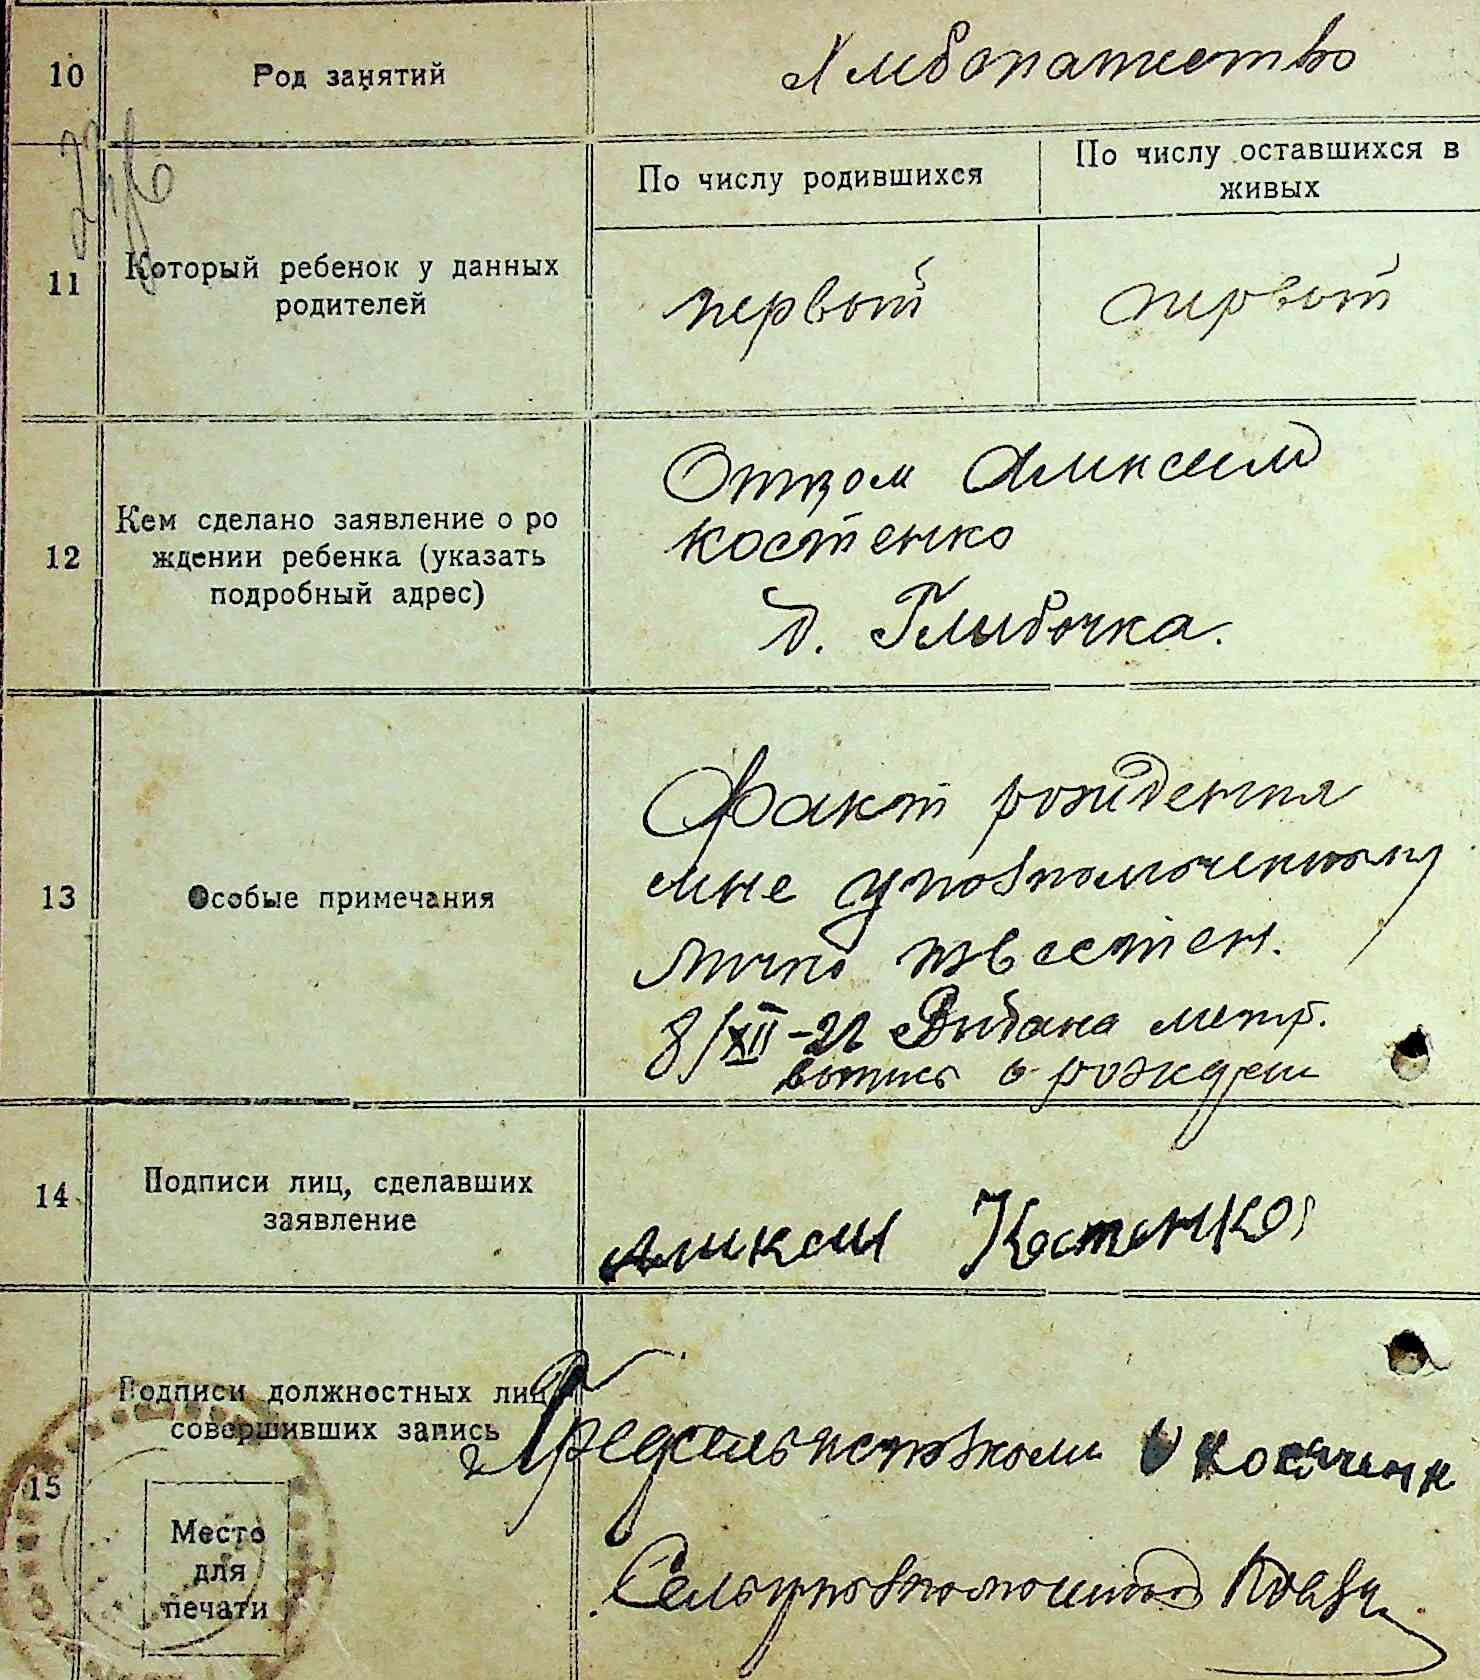 10 Род занятий Хлибопашество
11 Который ребенок у данных
родителей
По числу родившихся
По числу оставшихся в
живых
первый первый
12 Кем сделано заявление о ро
ждении ребенка (указать
подробный адрес)
Отцом Аликсием
Костенко
д. Глыбочка.
13 Особые примечания
Факт рождения
мне уповномоченному
лично известен.
8/XII-22 Видана метр.
выпись о рожден
14 Подписи лиц, сделавших
заявление
Аликсы Костенко
15 Подписи должностных лиц
совершивших запись
Председ
Место
для
печати
Сельуповномоченный